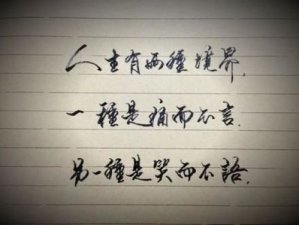 人生有兩種境界.
一種是痛而不言.
另一種是笑而不語.